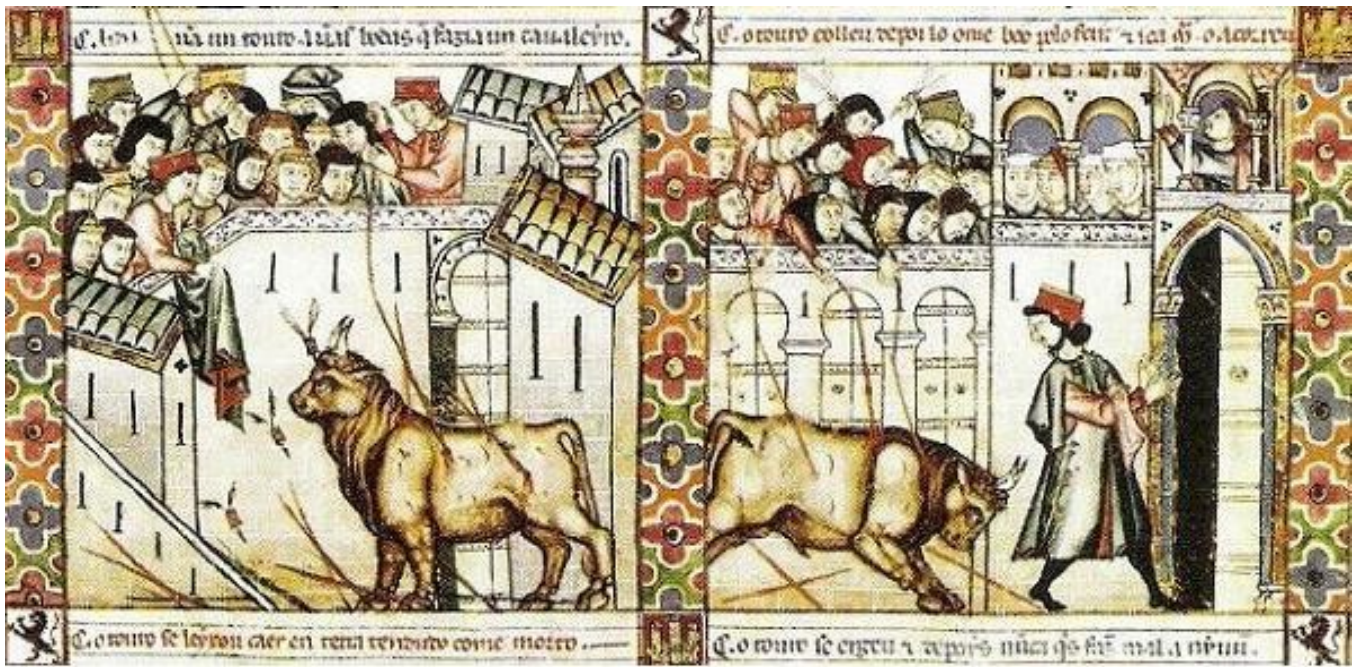 un touro a ũas bodas q̃ fazia un caualeyro.
o touro colleu depos lo ome boo polo ferir ⁊ o acorreu
o touro se leyxou caer en terra tendudo come morto.
o touro se ergeu ⁊ depoys nũca q̃s mal a